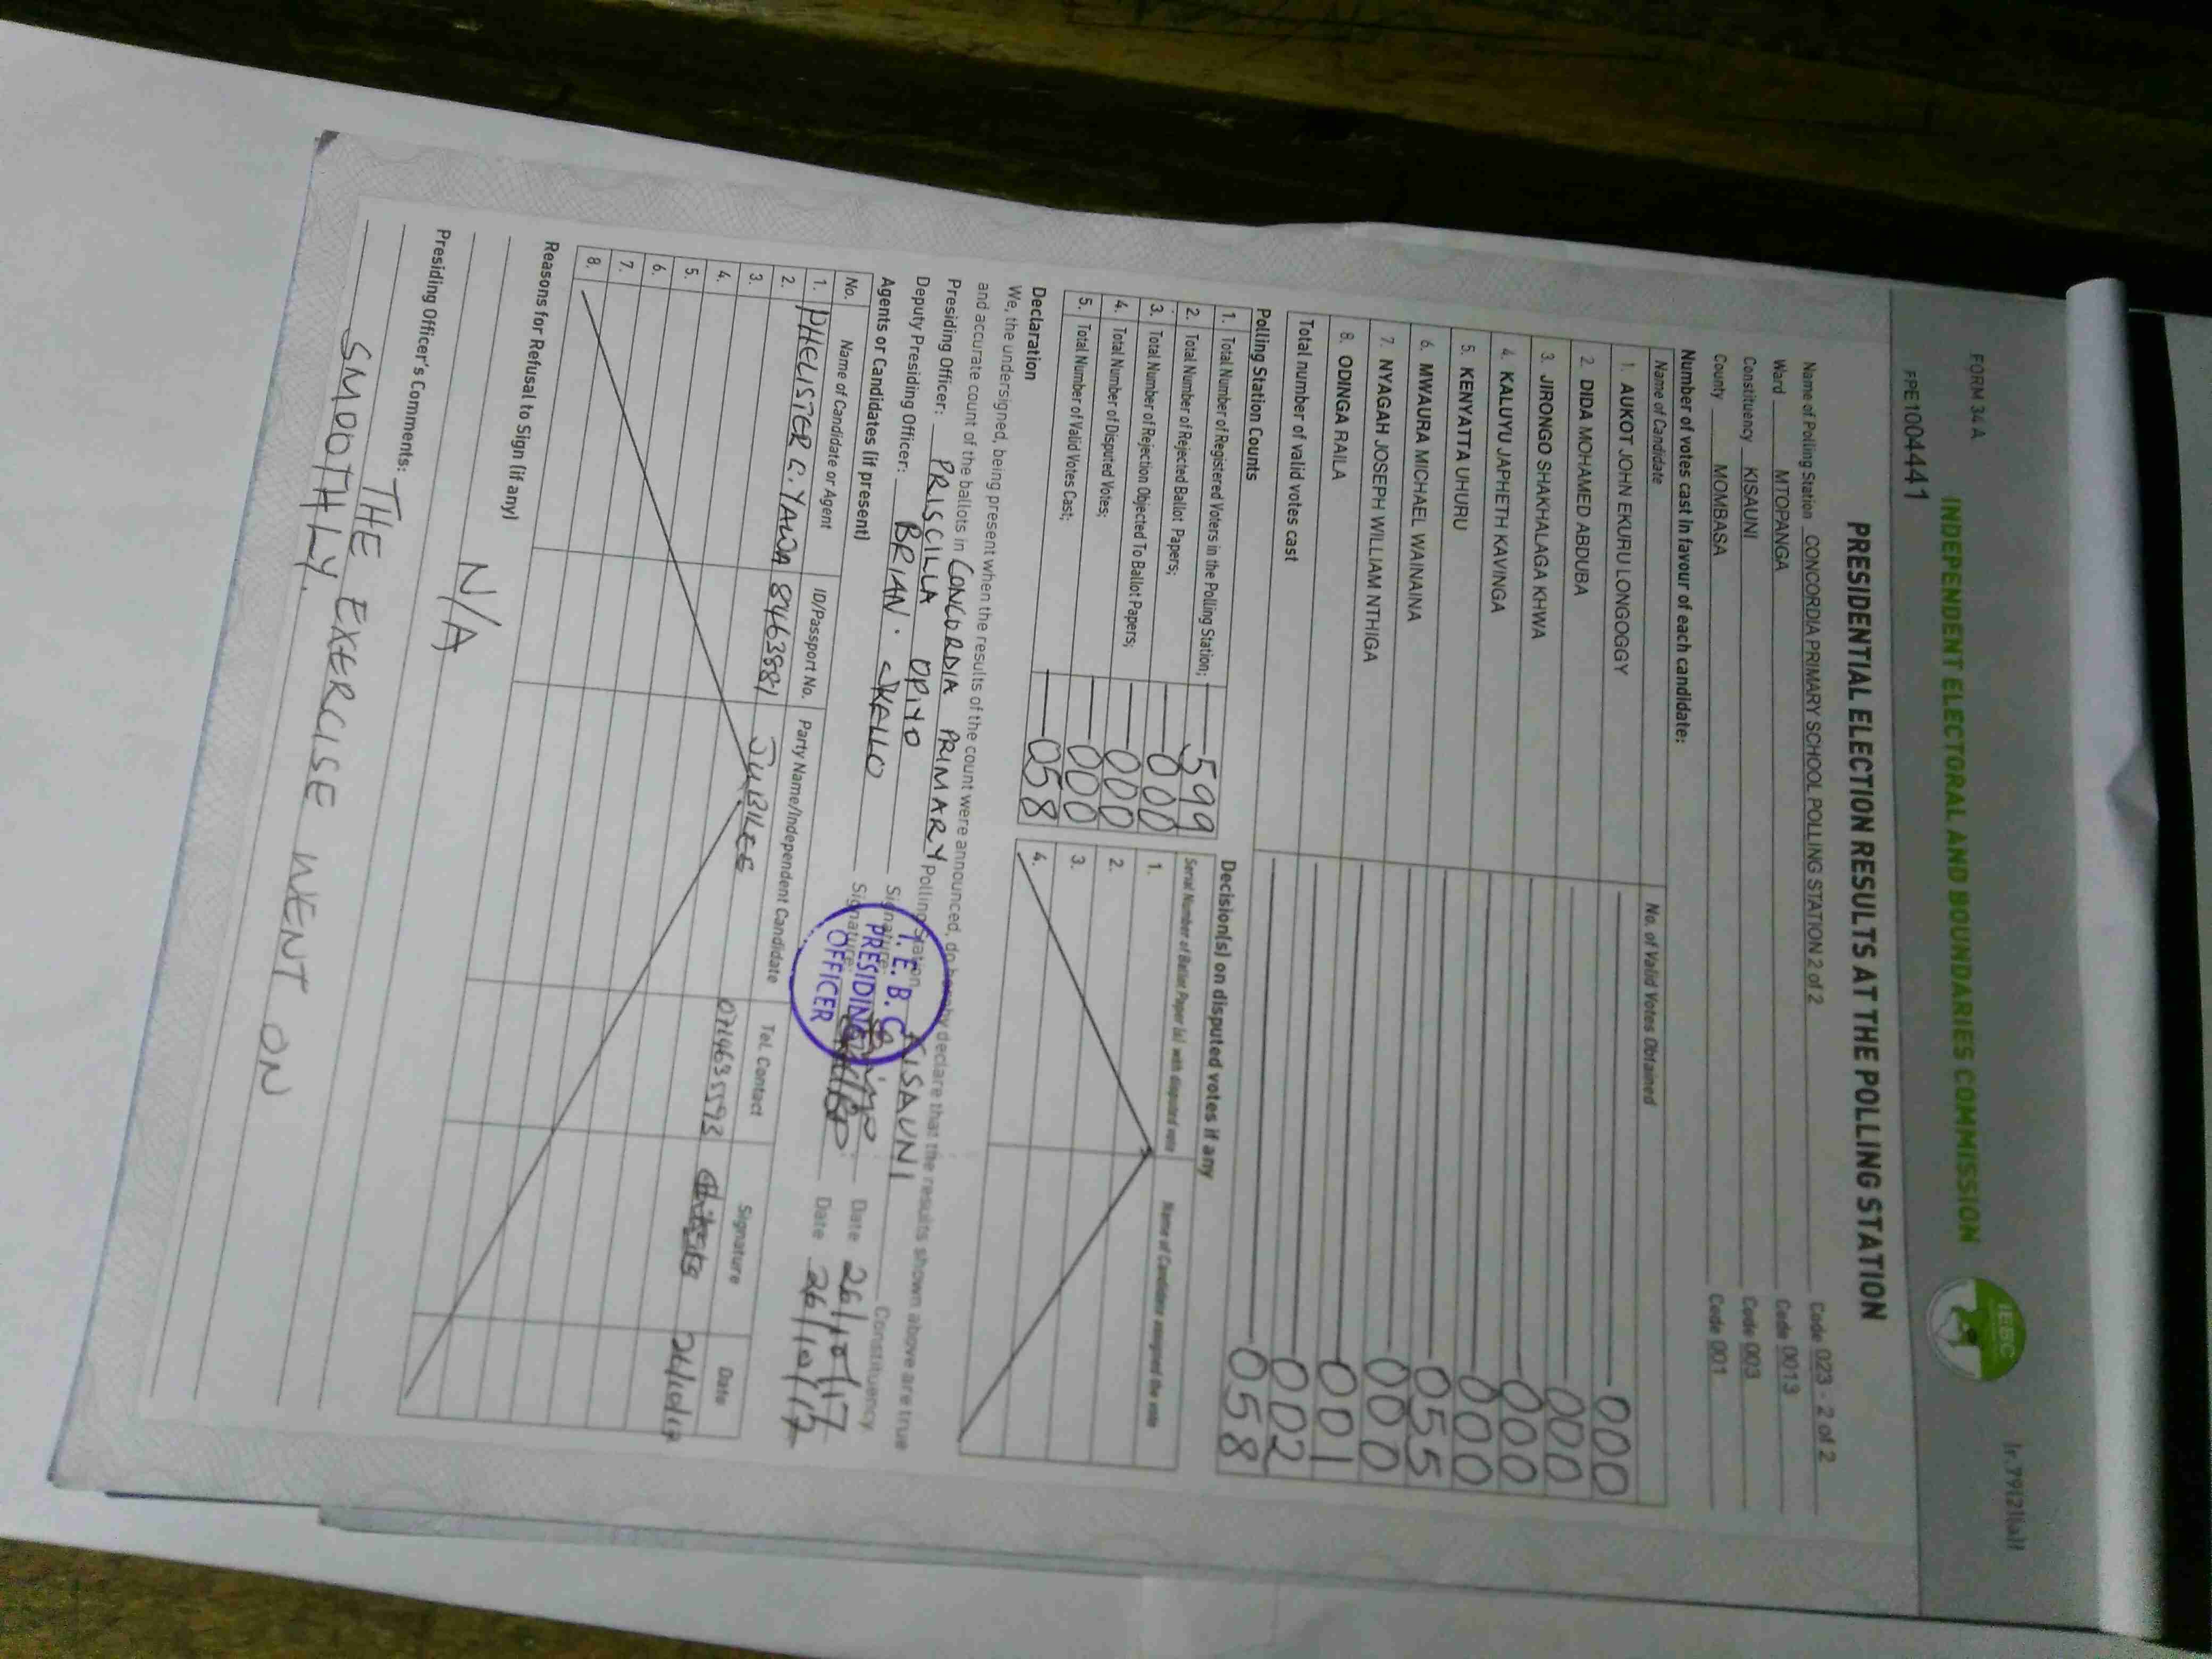 FORM 34A
lr. 7912
INDEPENDENT ELECTORAL AND BOUNDARIES COMMISSION
IEBC
FPE1004441
PRESIDENTIAL ELECTION RESULTS AT THE POLLING STATION
Name of Polling Station CONCORDIA PRIMARY SCHOOL POLLING STATION 2 of 2 Code 023 - 2 of 2
Ward MTOPANGA Code 0013
Constituency KISAUNI Code 003
County MOMBASA Code 001
Number of votes cast in favour of each candidate:
Name of Candidate No. of Valid Votes Obtained
1. AUKOT JOHN EKURU LONGOGGY 000
2. DIDA MOHAMED ABDUBA 000
3. JIRONGO SHAKHALAGA KHWA 000
4. KALUYU JAPHETH KAVINGA 000
5. KENYATTA UHURU 055
6. MWAURA MICHAEL WAINAINA 000
7. NYAGAH JOSEPH WILLIAM NTHIGA 001
8. ODINGA RAILA 002
Total number of valid votes cast 058
Polling Station Counts
1. Total Number of Registered Voters in the Polling Station; 599
2. Total Number of Rejected Ballot Papers; 000
3. Total Number of Rejection Objected To Ballot Papers; 000
4. Total Number of Disputed Votes; 000
5. Total Number of Valid Votes Cast; 058
Decision(s) on disputed votes if any
Serial Number of Ballot Paper (s) with disputed vote Name of Candidate assigned the vote
1.
2.
3.
4.
Declaration
We, the undersigned, being present when the results of the count were announced, do hereby declare that the results shown above are true
and accurate count of the ballots in CONCORDIA PRIMARY Polling Station KISAUNI Constituency
Presiding Officer: PRISCILLA OPIYO Signature: Date 26/10/17
Deputy Presiding Officer: BRIAN. Signature: Date 26/10/17
I.E.B.C
PRESIDING
OFFICER
Agents or Candidates (if present)
No. Name of Candidate or Agent ID/Passport No. Party Name/Independent Candidate Tel. Contact Signature Date
1. PHELISTER C. YAWA 8463881 JUBILEE 0714635593 26/10/17
2.
3.
4.
5.
6.
7.
8.
Reasons for Refusal to Sign (if any)
N/A
Presiding Officer's Comments: THE EXERCISE WENT ON
SMOOTHLY.